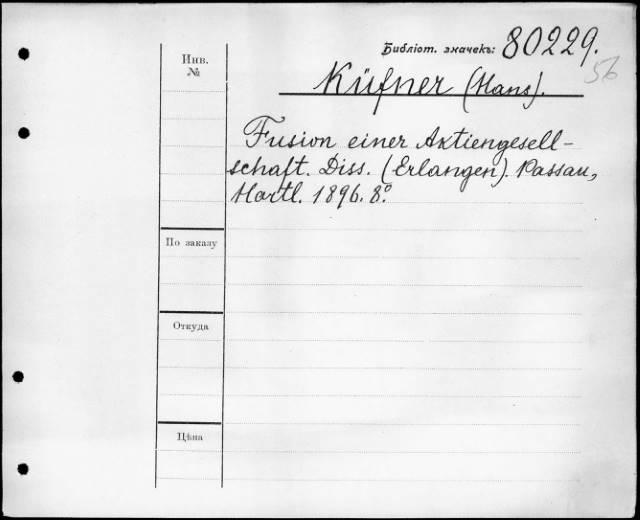 Библіот. значекъ: 80229.
56
Инв.
№
Küfner (Hans).
Fusion einer Aktiengesell-
schaft. Diss. (Erlangen). Passau,
Hartl. 1896. 8º.
По заказу
Откуда
Цѣна